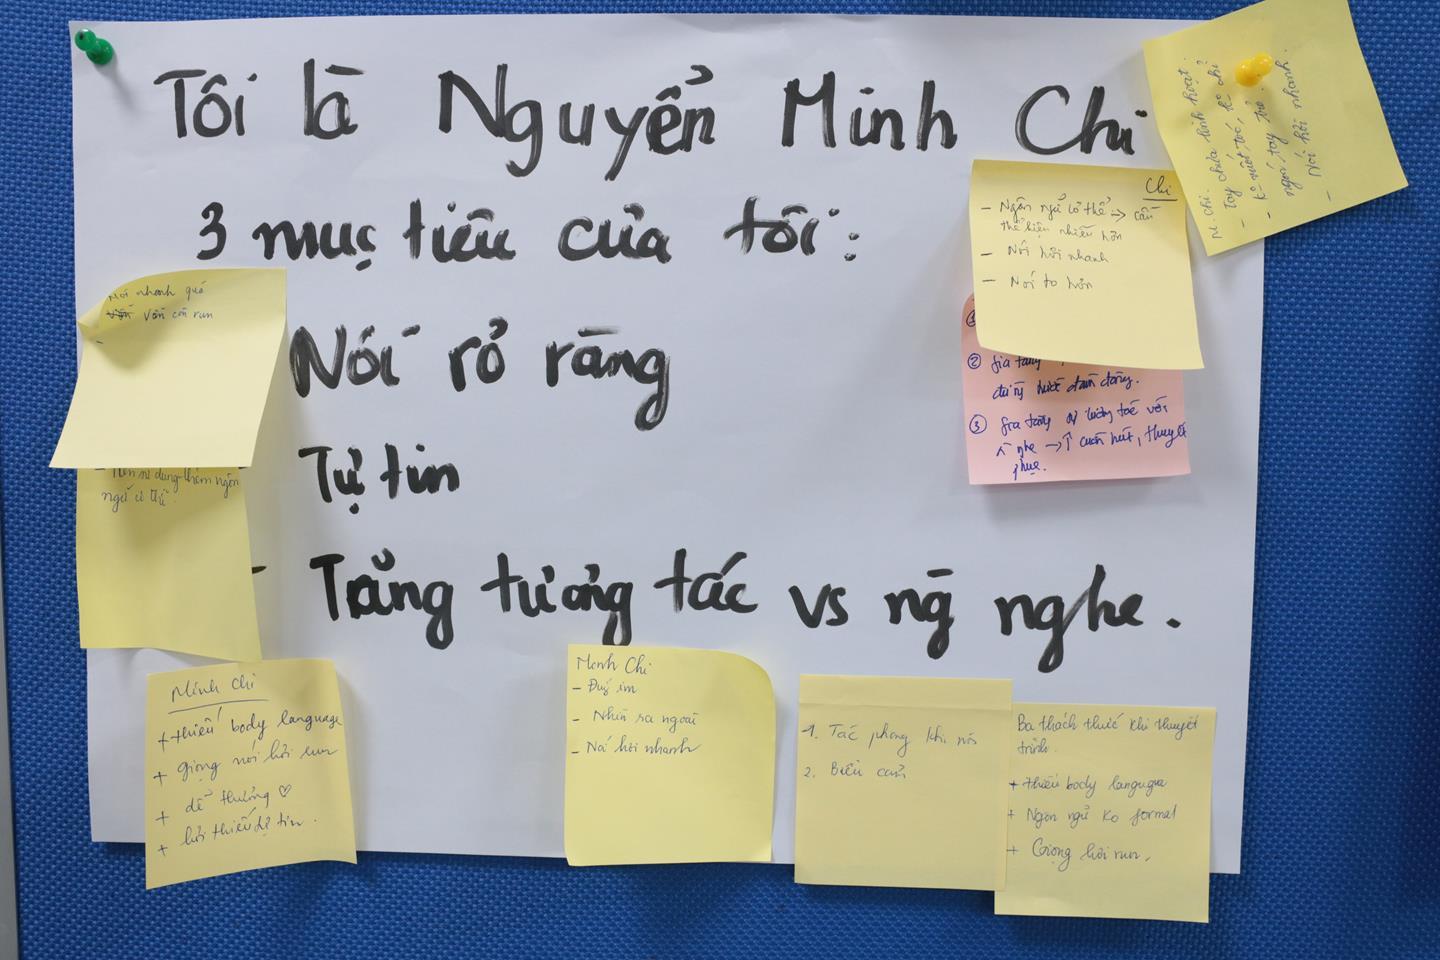 Tôi là Nguyển Minh Chi
3 mục tiêu của tôi:
Nói rỏ ràng
Tự tin
- Tăng tương tác vs ng̃ nghe.
N. Chi. chưa linh hoạt.
- ngón tay trỏ.
- Nói hơi nhanh.
Chi
- Ngôn ngữ cơ thể → cần
thể hiện nhiều hơn
- Nói hơi nhanh
- Nói to hơn
② Gia tăng
③ Gia tăng sự tương tác với
nghe → ↑ cuốn hút, thuyết
phục.
Nói nhanh quá
Vẫn còn run
-
- Nên sử dụng thêm ngôn
ngữ cơ thể.
Minh Chi
+ thiếu body language
+ giọng nói hơi run
+ dể thương ♡
+ hơi thiếu tự tin.
Minh Chi
- Đứng im
- Nhìn ra ngoài
- Nói hơi nhanh
1. Tác phong khi nói
2. Biểu cảm
Ba thách thức khi thuyết
trình.
+ thiếu body langugue
+ Ngôn ngử ko formal
+ Giọng hơi run.